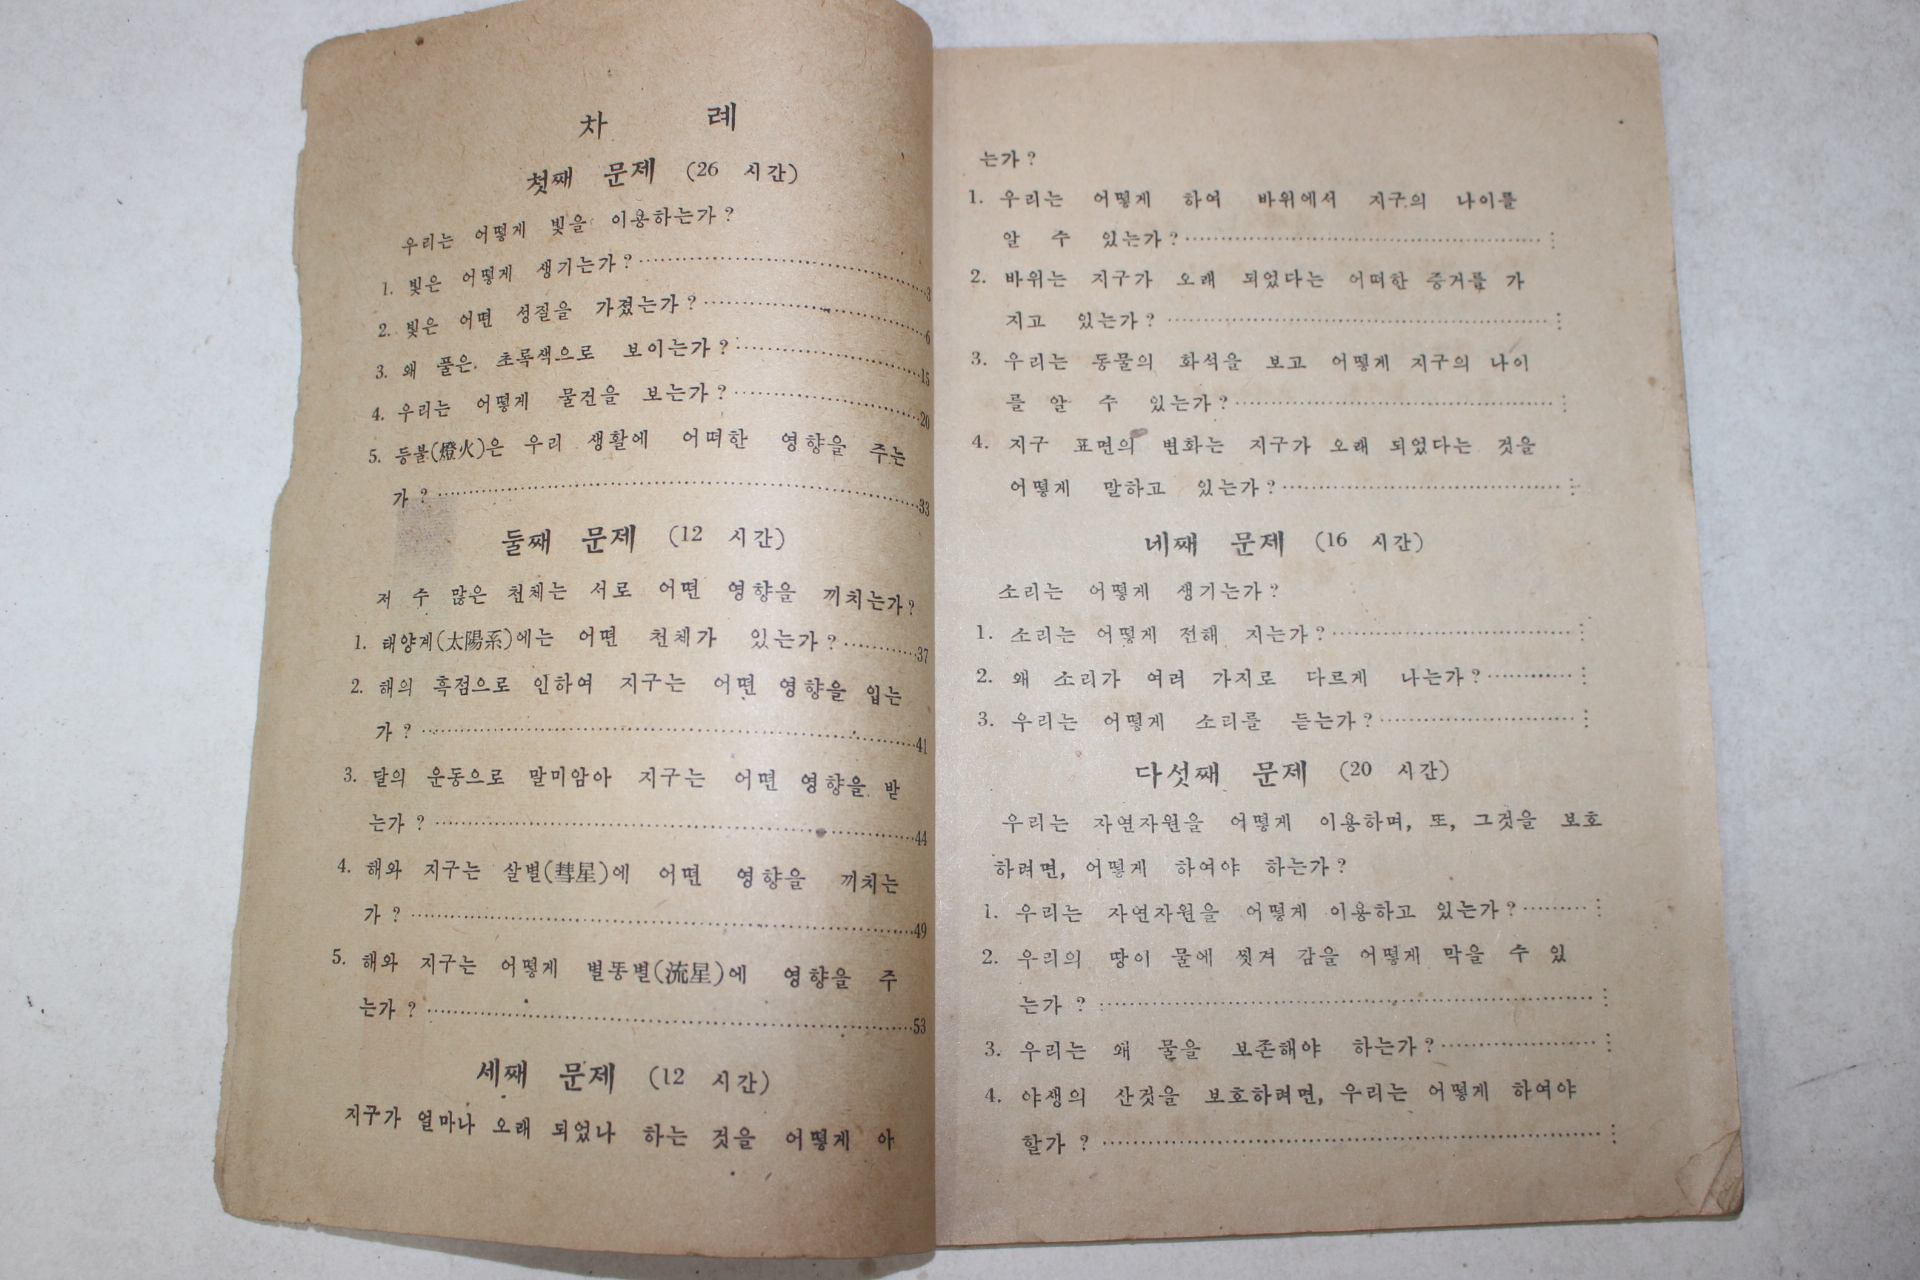 차 례
첫째 문제 (26 시간)
우리는 어떻게 빛을 이용하는가?
1. 빛은 어떻게 생기는가?……3
2. 빛은 어떤 성질을 가졌는가?……6
3. 왜 풀은 초록색으로 보이는가?……15
4. 우리는 어떻게 물건을 보는가?……20
5. 등불(燈火)은 우리 생활에 어떠한 영향을 주는
가?……33
둘째 문제 (12 시간)
저 수 많은 천체는 서로 어떤 영향을 끼치는가?
1. 태양계(太陽系)에는 어떤 천체가 있는가?……37
2. 해의 흑점으로 인하여 지구는 어떤 영향을 입는
가?……41
3. 달의 운동으로 말미암아 지구는 어떤 영향을 받
는가?……44
4. 해와 지구는 살별(彗星)에 어떤 영향을 끼치는
가?……49
5. 해와 지구는 어떻게 별똥별(流星)에 영향을 주
는가?……53
세째 문제 (12 시간)
지구가 얼마나 오래 되었나 하는 것을 어떻게 아
는가?
1. 우리는 어떻게 하여 바위에서 지구의 나이를
알 수 있는가?……
2. 바위는 지구가 오래 되었다는 어떠한 증거를 가
지고 있는가?……
3. 우리는 동물의 화석을 보고 어떻게 지구의 나이
를 알 수 있는가?……
4. 지구 표면의 변화는 지구가 오래 되었다는 것을
어떻게 말하고 있는가?……
네째 문제 (16 시간)
소리는 어떻게 생기는가?
1. 소리는 어떻게 전해 지는가?……
2. 왜 소리가 여러 가지로 다르게 나는가?……
3. 우리는 어떻게 소리를 듣는가?……
다섯째 문제 (20 시간)
우리는 자연자원을 어떻게 이용하며, 또, 그것을 보호
하려면, 어떻게 하여야 하는가?
1. 우리는 자연자원을 어떻게 이용하고 있는가?……
2. 우리의 땅이 물에 씻겨 감을 어떻게 막을 수 있
는가?……
3. 우리는 왜 물을 보존해야 하는가?……
4. 야생의 산것을 보호하려면, 우리는 어떻게 하여야
할가?……